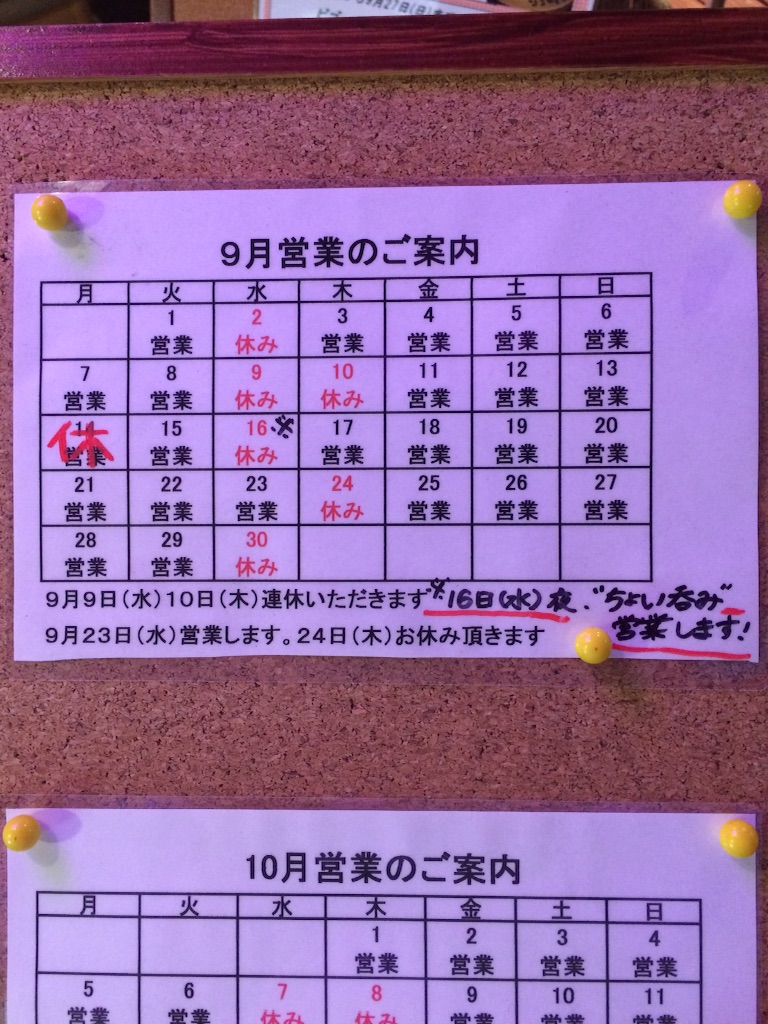 09月27日(日)
9月営業のご案内
月 火 水 木 金 土 日
1 2 3 4 5 6
営業 休み 営業 営業 営業 営業
7 8 9 10 11 12 13
営業 営業 休み 休み 営業 営業 営業
休 15 16※ 17 18 19 20
営業 営業 休み 営業 営業 営業 営業
21 22 23 24 25 26 27
営業 営業 営業 休み 営業 営業 営業
28 29 30
営業 営業 休み
9月9日(水)10日(木)連休いただきます ※16日(水)夜、"ちょい呑み"
9月23日(水)営業します。24日(木)お休み頂きます 営業します!
10月営業のご案内
月 火 水 木 金 土 日
1 2 3 4
営業 営業 営業 営業
5 6 7 8 9 10 11
営業 営業 休み 休み 営業 営業 営業